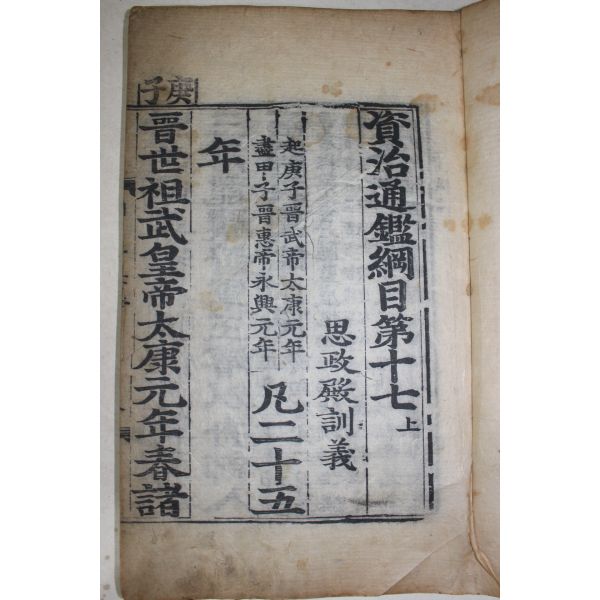 資治通鑑綱目第十七上
思政殿訓義
起庚子晋武帝太康元年
盡甲子晋惠帝永興元年
凡二十五
年
庚子
晋世祖武皇帝太康元年春諸